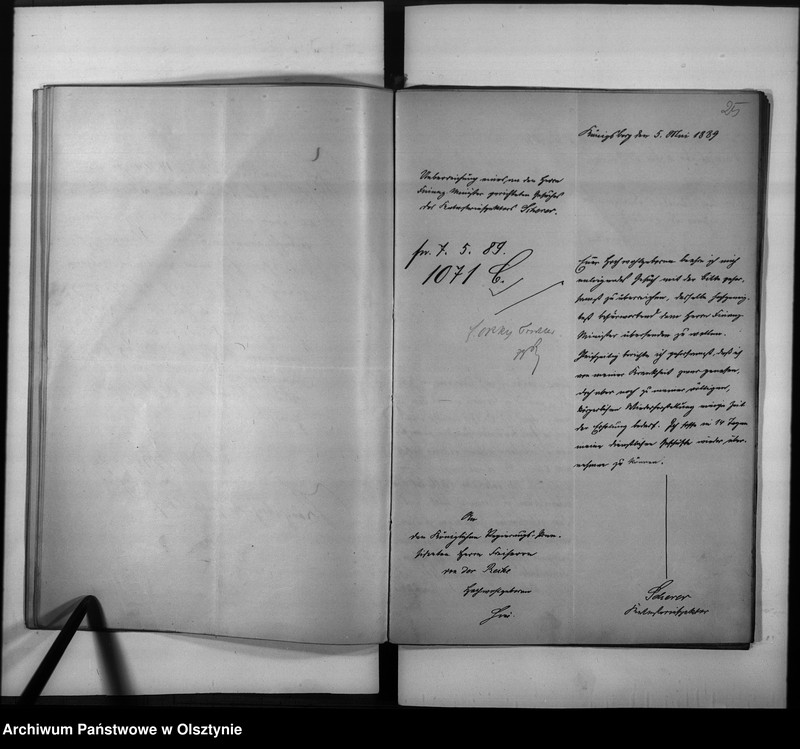 25
Königsberg den 5. Mai 1889
Ueberreichung eines, an den Herrn
Finanz Minister gerichteten Gesuches
des Katasterinspektors Scherer.
pr. 7. 5. 89.
1071 C.
Euer Hochwohlgeboren beehre ich mich
anliegendes Gesuch mit der Bitte gehor-
samst zu überreichen, dasselbe hochgeneig-
test befürwortend dem Herrn Finanz
Minister übersenden zu wollen.
Gleichzeitig berichte ich gehorsamst, daß ich
von meiner Krankheit zwar genesen,
doch aber noch zu meiner völligen,
körperlichen Wiederherstellung einige Zeit
der Erholung bedarf. Ich hoffe in 14 Tagen
meine dienstlichen Geschäfte wieder über-
nehmen zu können.
An
den Königlichen Regierungs Prae-
sidenten Herrn Freiherrn
von der Recke
Hochwohlgeboren
Hier
Scherer
Katasterinspektor
Archiwum Państwowe w Olsztynie